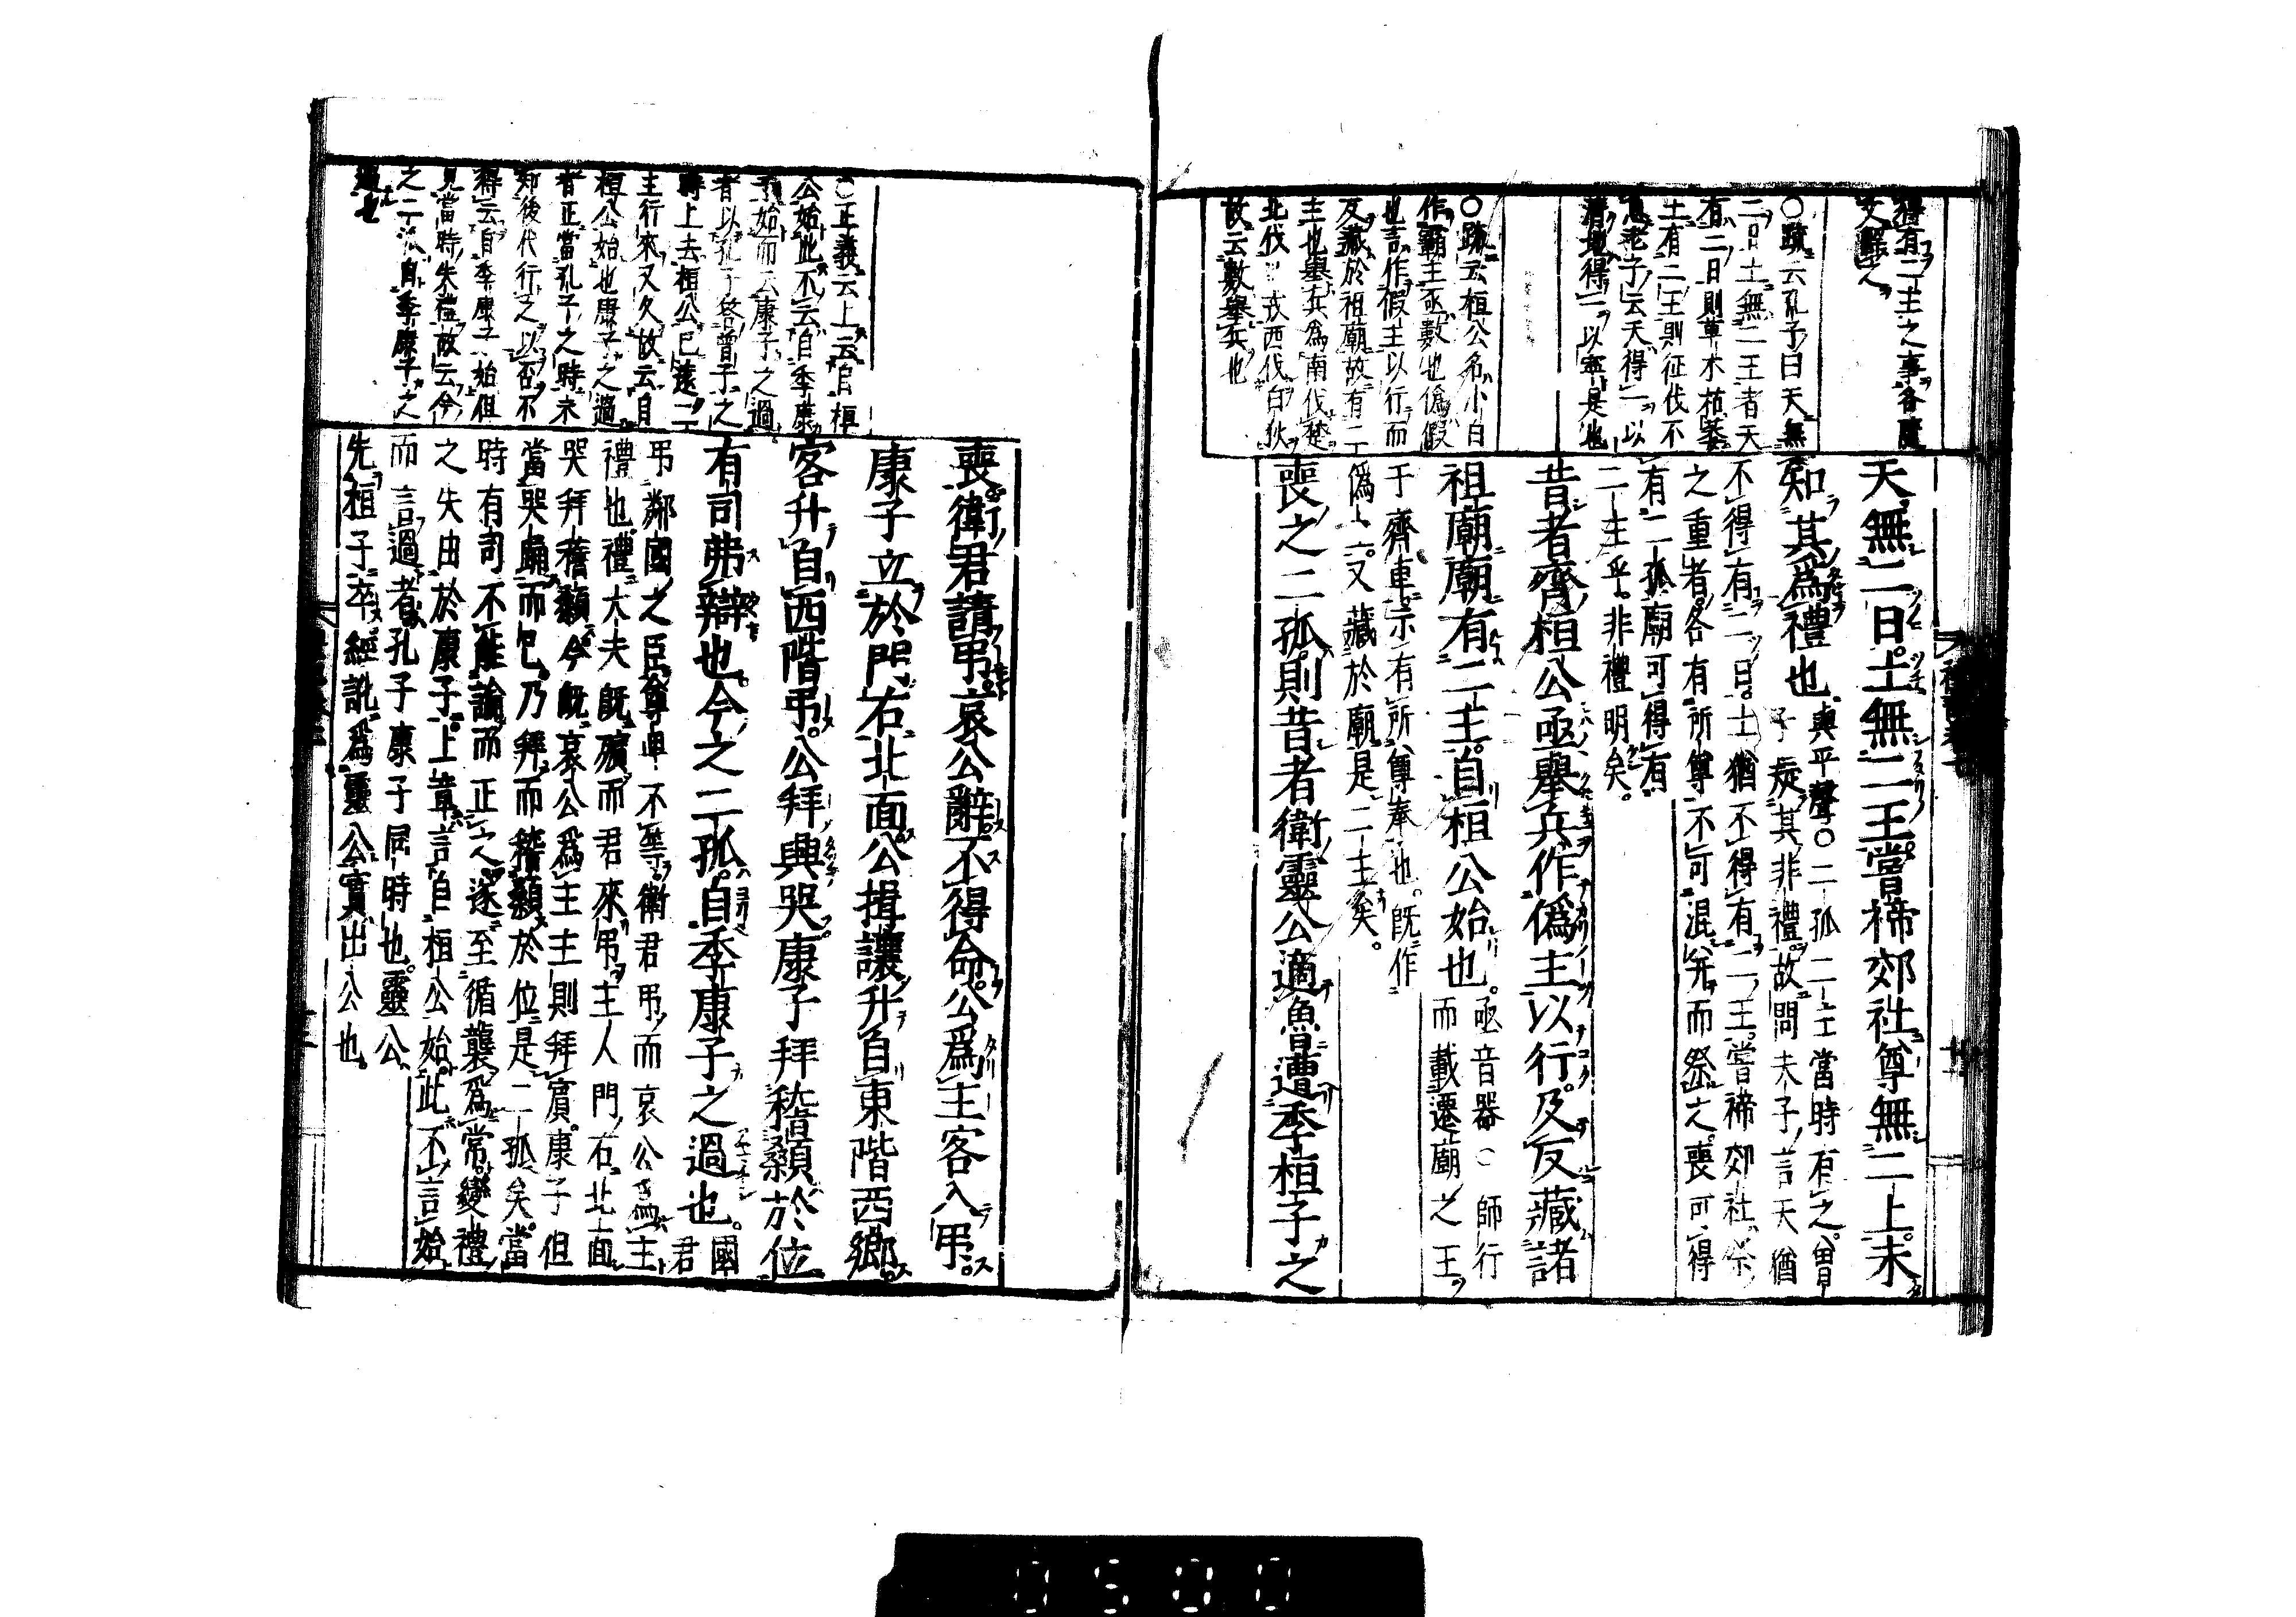 得有二主之事各隨
文解之
○疏云孔子曰天無
二日土無二王者天
有二日則草木枯萎
土有二王則征伐不
息老子云天得一以
清地得一以寧是也
○疏云桓公名小白
作霸主亟數也僞假
也言作假主以行而
反藏於祖廟故有二
主也舉兵爲南伐楚
北伐山戎西伐白狄
故云數舉兵也
天無二日土無二王嘗禘郊社尊無二上未
知其爲禮也
與平聲○二孤二主當時有之曾
子疑其非禮故問夫子言天猶
不得有二日土猶不得有二王嘗禘郊社祭
之重者各有所尊不可混幷而祭之喪可得
有二孤廟可得有
二主乎非禮明矣
昔者齊桓公亟舉兵作僞主以行及反藏諸
祖廟廟有二主自桓公始也
亟音器○師行
而載遷廟之主
于齊車示有所尊奉也既作
僞主又藏於廟是二主矣
喪之二孤則昔者衛靈公適魯遭季桓子之
○正義云上云自桓
公始此不云自季康
子始而云康子之過
者以孔子答曾子之
時上去桓公已遠二
主行來又久故云自
桓公始也康子之過
者正當孔子之時未
知後代行之以否不
得云自季康子始但
見當時失禮故云今
之二孤自季康子之
過也
喪衛君請弔哀公辭不得命公爲主客入弔
康子立於門右北面公揖讓升自東階西鄉
客升自西階弔公拜興哭康子拜稽顙於位
有司弗辯也今之二孤自季康子之過也
國
君
弔鄰國之臣尊卑不等衛君弔而哀公爲主
禮也禮大夫既殯而君來弔主人門右北面
哭拜稽顙今既哀公爲主主則拜賓康子但
當哭踊而已乃拜而稽顙於位是二孤矣當
時有司不能論而正之遂至循襲爲常變禮
之失由於康子上章言自桓公始此不言始
而言過者孔子康子同時也靈公
先桓子卒經訛爲靈公實出公也